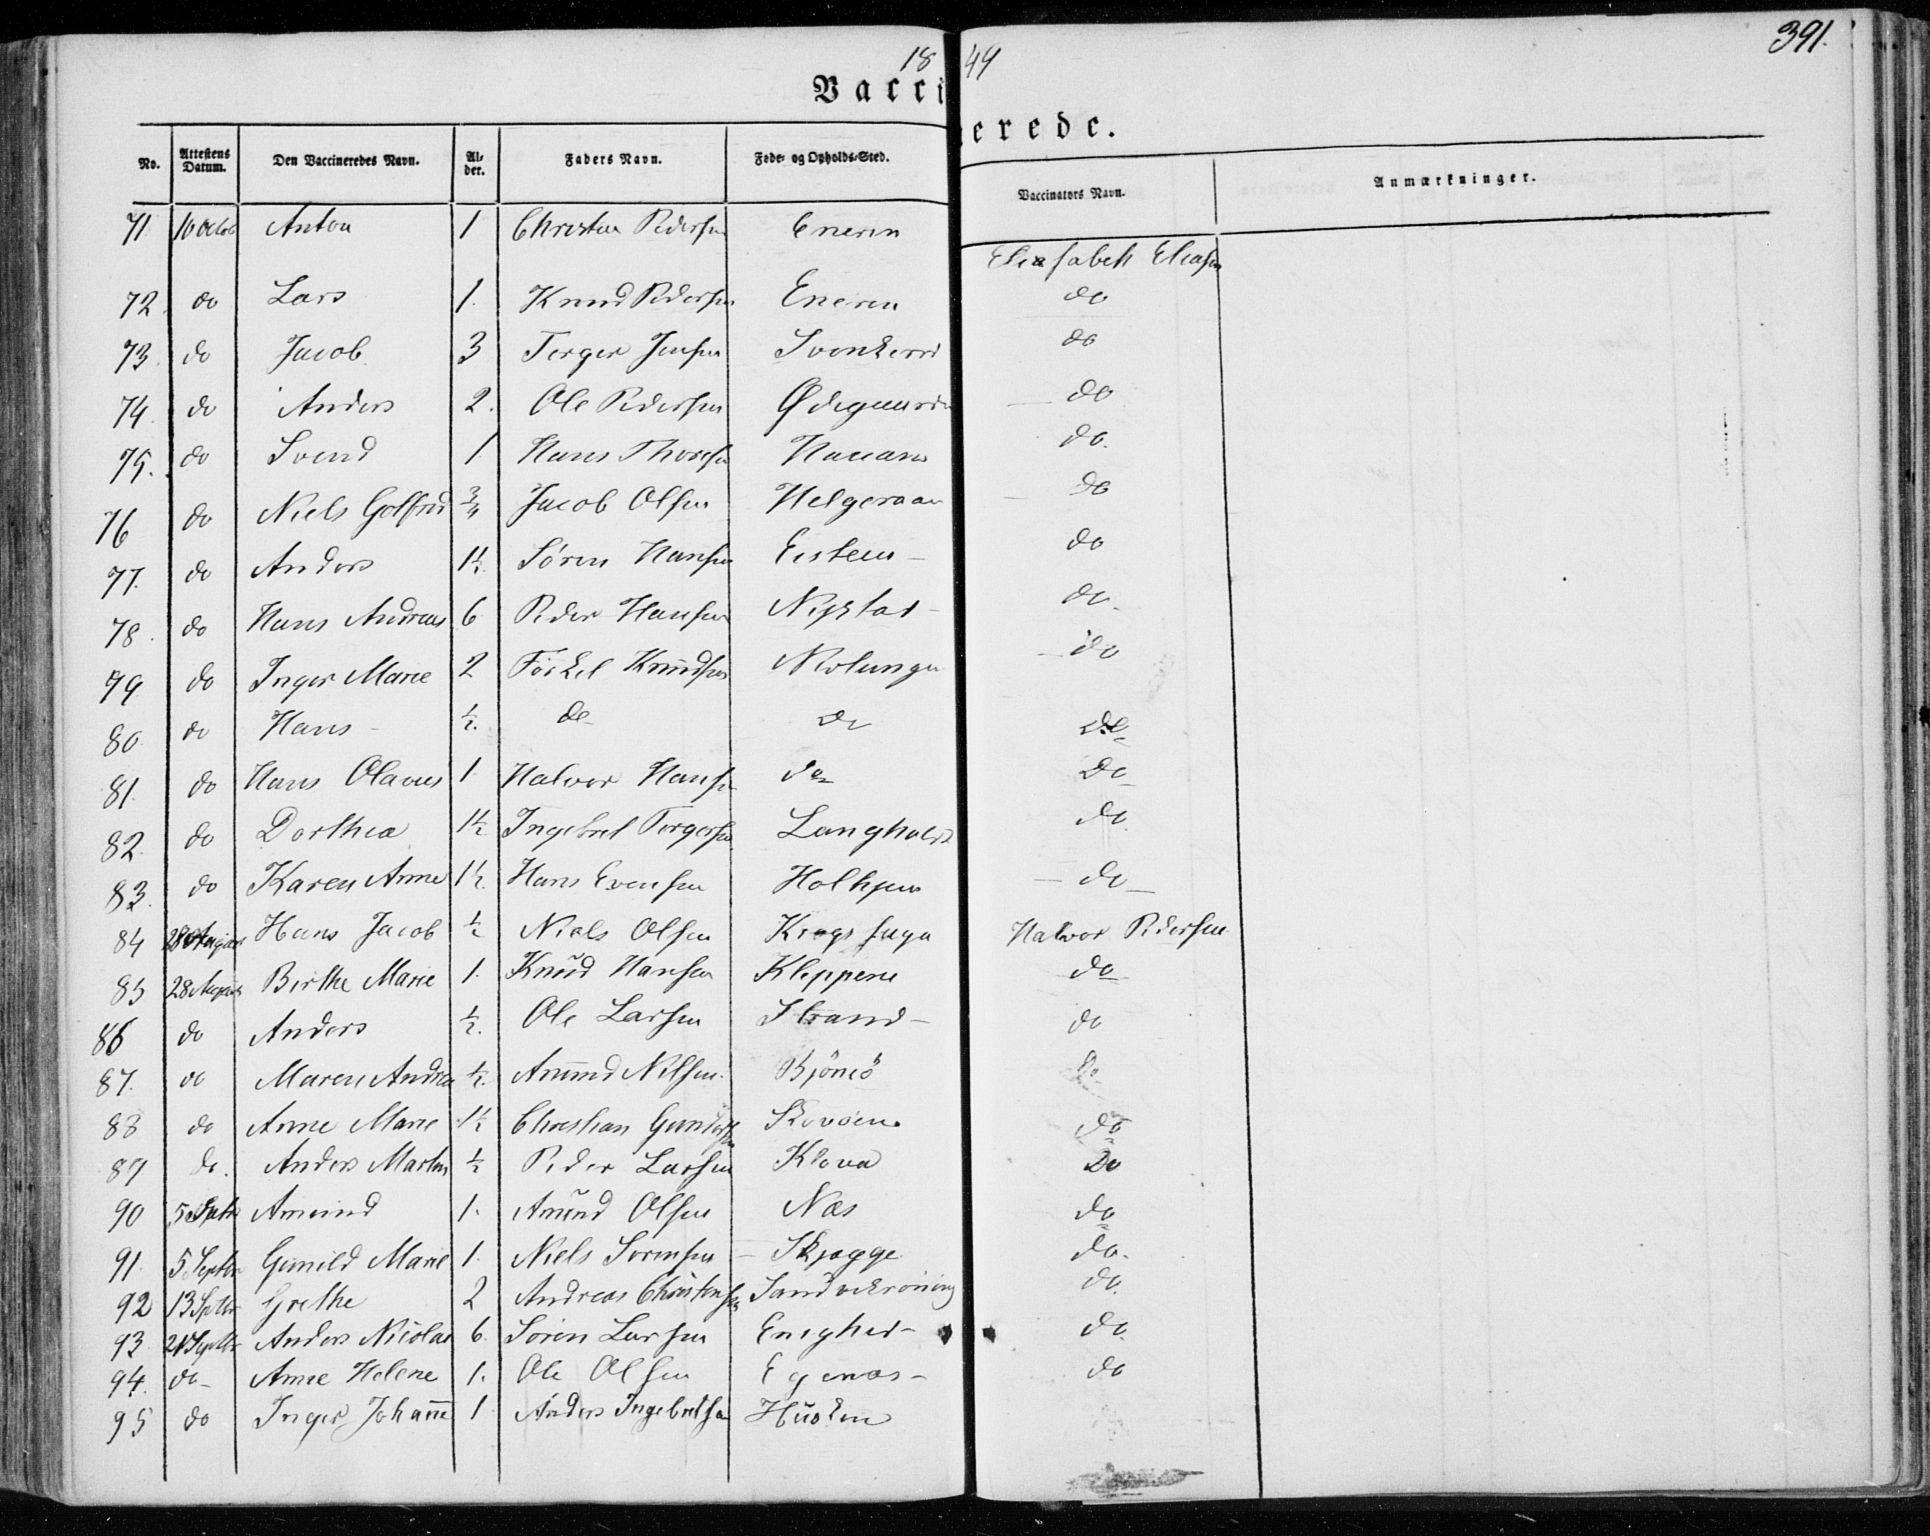 391.
18 49
Vacci erede.
No. Attestens Datum. Den Vaccineredes Navn. Al-der. Faders Navn. Føde- og Opholds-Sted. Vaccinators Navn. Anmærkninger.
71 Anton 1 Pedersen Eneren Elisabeth
72 do Lars 1. Knud Pedersen Eneren do
73. do Jacob 3 Torger Jensen do
74 do Anders 2. Ole Pedersen Ødegaarden do
75. do Svend 1 Hans do.
76 do Niels 3/4 Jacob Olsen Helgeraaen do
77. do Anders 1½ Sören Hansen do
78. do Hans Andreas 6 Peder Hansen do.
79 do Inger Marie 2 Knudsen do
80. do Hans ½. do do do
81. do Hans Olavus 1 Halvor Hansen do do
82. do Dorthea 1½ Ingebret Torgersen Langholdt do.
83. do Karen Anne 1½. Hans Evensen do
84 Hans Jacob ½ Niels Olsen Halvor Pedersen
85 28 August Birthe Marie 1. Knud Hansen Klippene do
86 do Anders ½. Ole Larsen Strand do
87. do Maren Andrea ½. Amund Nilsen. Bjönö do
88 do Anne Marie 1½ Christian do
89 do. Anders Martin ½ Peder Larsen do
90 5 Septr Amund 1. Amund Olsen Næs do
91. 5 Septbr Gunild Marie 1. Niels Sorensen do.
92 13 Septbr Grethe 2 Andreas Christensen do.
93. Anders Nicolai 6. Sören Larsen Enighed do.
94. do Anne Helene 1. Ole Olsen Egenæs do
95 do Inger Johanne 1 Anders Ingebretsen